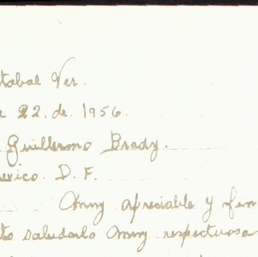 tabal Ver.
22. de. 1956.
Guillermo Brady.
exico. D. F.
Muy apreciable y
saludarlo muy respetuosa